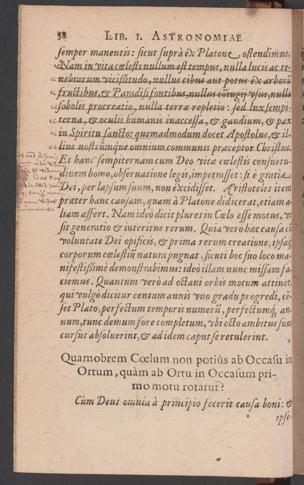 38 LIB. I. ASTRONOMIAE
semper manentis: sicut suprà ex Platone ostendimus.
Nam in vita cœlesti nullum est tempus, nulla lucis ac te-
nebrarum vicissitudo, nullus cibus aut potus ex arborũ
fructibus, & Paradisi fontibus, nullus cõiugij vsus, nulla
sobolis procreatio, nulla terræ repletio: sed lux sempi-
terna, & oculis humanis inaccessa, & gaudium, & pax
in Spiritu sancto: quemadmodum docet Apostolus, & il-
lius nostrûmque omnium communis præceptor Christus.
Et hanc sempiternam cum Deo vitæ cœlestis consuetu-
dinem homo, obseruatione legis, impetrasset: si è gratia
Dei, per lapsum suum, non excidisset. Aristoteles item
præter hanc causam, quam à Platone didicerat, etiam a-
liam affert. Nam ideò dicit plures in Cœlo esse motus, vt
sit generatio & interitus rerum. Quia verò hæc causa cũ
voluntate Dei opificis, & prima rerum creatione, ipsaq́;
corporum cœlestiũ natura pugnat, sicuti hoc suo loco ma-
nifestissimè demonstrabimus: ideò illam nunc missam fa-
ciemus. Quantum verò ad octaui orbis motum attinet,
qui vulgò dicitur centum annis vno gradu progredi, cẽ-
set Plato, perfectum temporis numerũ, perfectumq́; an-
num, tunc demum fore completum, vbi octo ambitus suos
cursus absoluerint, & ad idem caput se retulerint.
Quamobrem Cœlum non potiùs ab Occasu in
Ortum, quàm ab Ortu in Occasum pri-
mo motu rotatur?
Cùm Deus omnia à principio fecerit causa boni: &
ipse